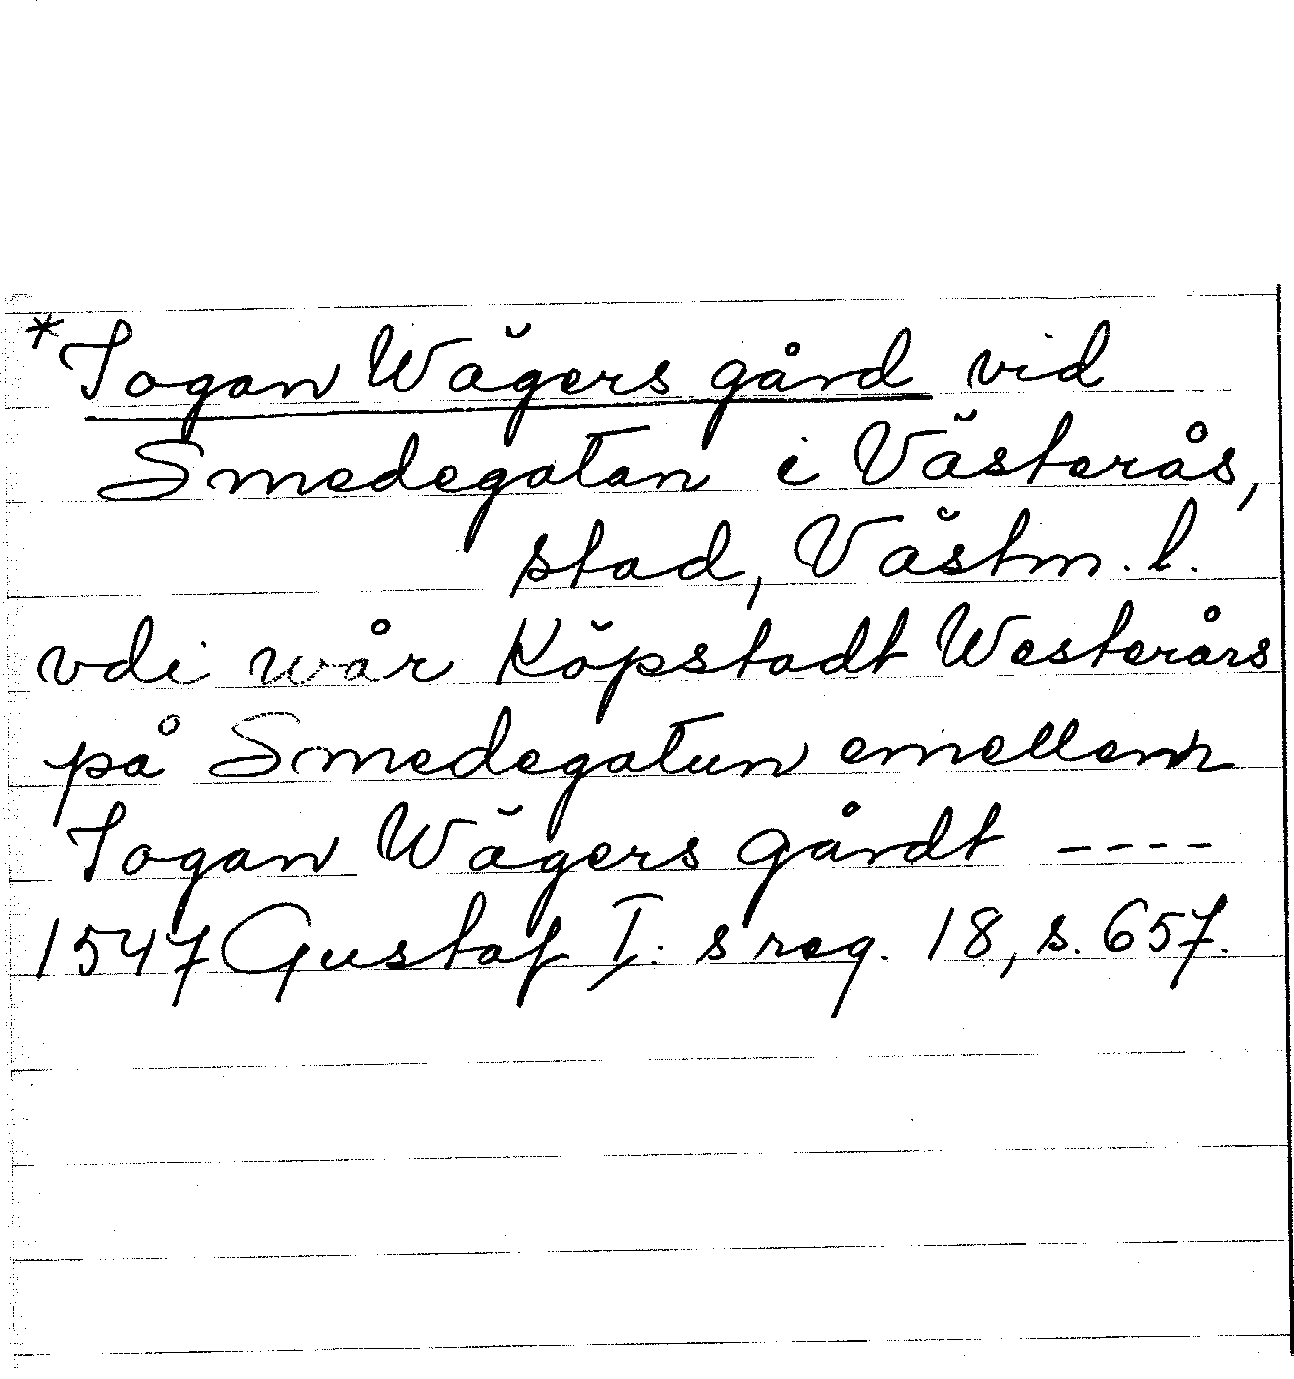 *Jogan Wägers gård vid
Smedegatan i Västerås,
stad, Västm. l.
vdi wår Köpstadt Westerårs
på Smedegatun emellenn
Jogan Wägers gårdt ----
1547 Gustaf I: s reg. 18, s. 657.